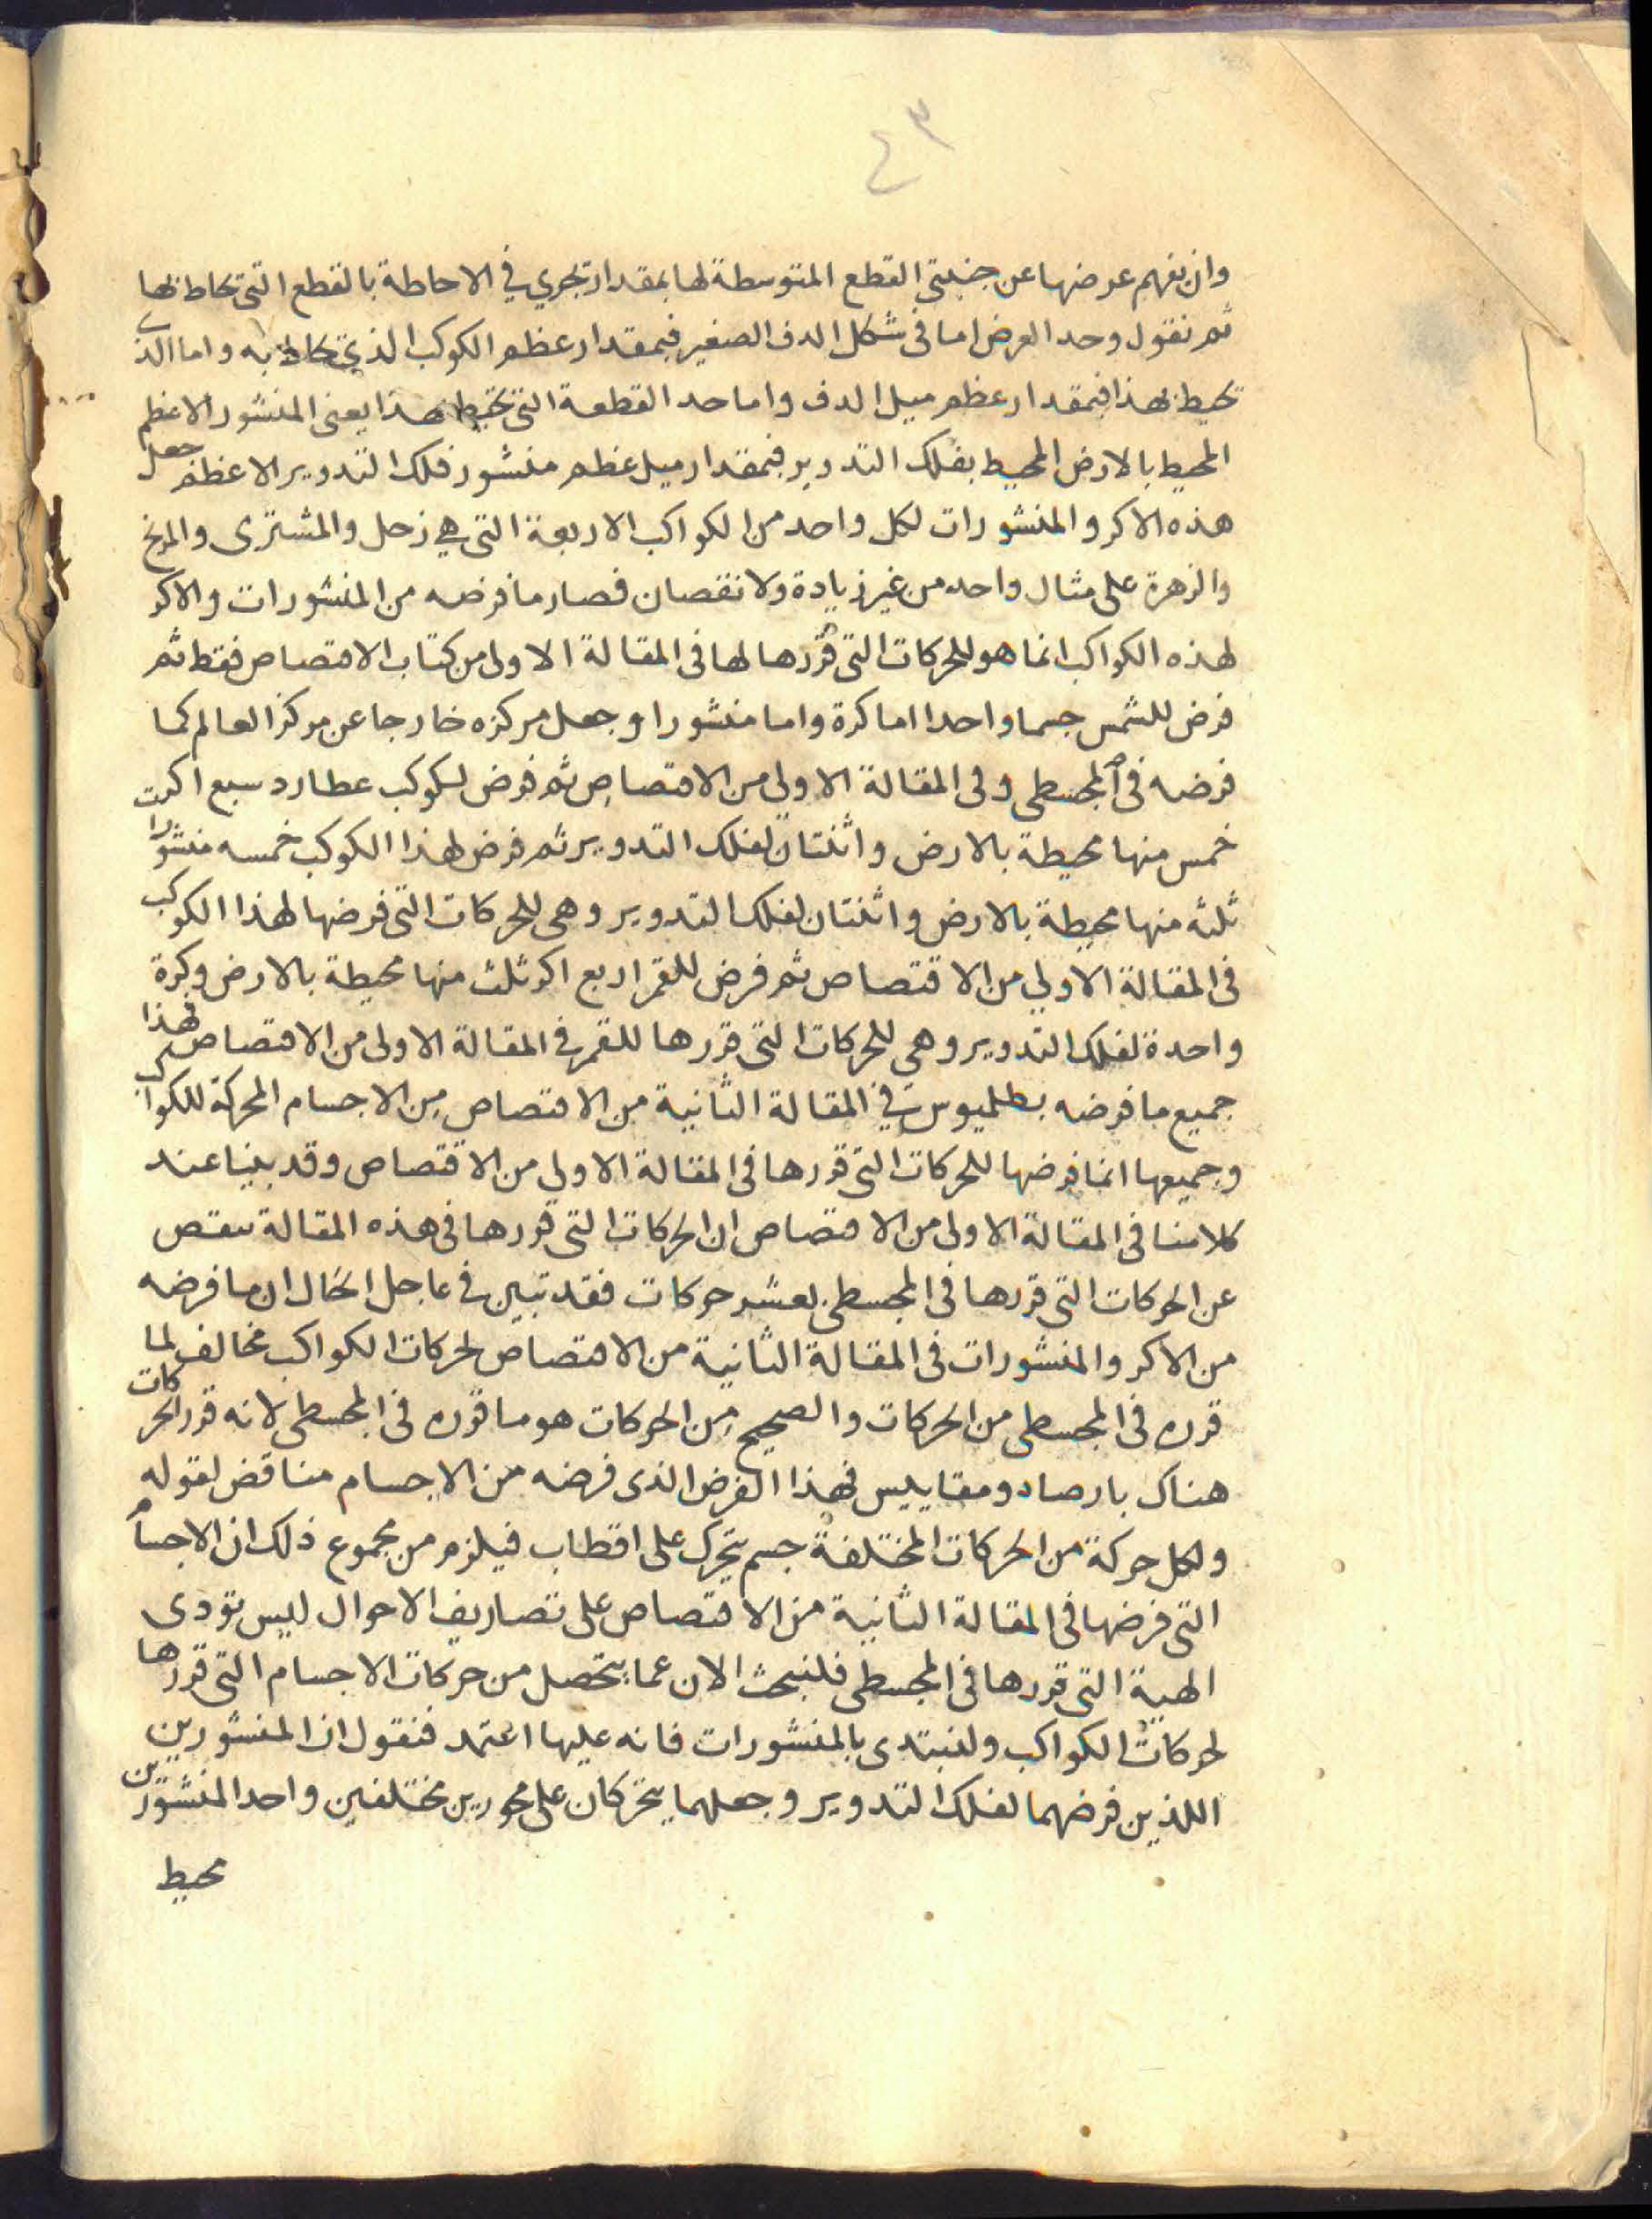 ٤٣
وان نفهم عرضها عن جنبتي القطع المتوسطة لها بمقدار تجري في الاحاطة بالقطع التي تحاط بها
ثم نقول وحد العرض اما في شكل الدف الصغير فبمقدار عظم الكوكب الذي تحاط به واما الذي
تحيط بهذا فبمقدار عظم ميل الدف واما حد القطعة التي تحيط بهذا يعني المنشور الاعظم
المحيط بالارض المحيط بفلك التدوير فبمقدار ميل عظم منشور فلك التدوير الاعظم جعل
هذه الاكر والمنشورات لكل واحد من الكواكب الاربعة التي هي زحل والمشترى والمريخ
والزهرة على مثال واحد من غير زيادة ولا نقصان فصار ما فرضه من المنشورات والاكر
لهذه الكواكب انما هو للحركات التي قررها لها في المقالة الاولى من كتاب الاقتصاص فقط ثم
فرض للشمس جسما واحدا اما كرة واما منشورا وجعل مركزه خارجا عن مركز العالم كما
فرضه في المجسطى وفي المقالة الاولى من الاقتصاص ثم فرض لكوكب عطارد سبع اكر
خمس منها محيطة بالارض واثنتان لفلك التدوير ثم فرض لهذا الكوكب خمسه منشورات
ثلثه منها محيطة بالارض واثنتان لفلك التدوير وهى للحركات التي فرضها لهذا الكوكب
في المقالة الاولي من الاقتصاص ثم فرض للقمر اربع اكر ثلث منها محيطة بالارض وكرة
واحدة لفلك التدوير وهى للحركات التي قررها للقمر في المقالة الاولى من الاقتصاص فهذا
جميع ما فرضه بطلميوس في المقالة الثانية من الاقتصاص من الاجسام المحركة للكواكب
وجميعها انما فرضها للحركات التي قررها في المقالة الاولي من الاقتصاص وقد بينا عند
كلامنا في المقالة الاولى من الاقتصاص ان الحركات التي قررها في هذه المقالة تنقص
عن الحركات التي قررها في المجسطى بعشر حركات فقد تبين في عاجل الحال ان ما فرضه
من الاكر والمنشورات في المقالة الثانية من الاقتصاص لحركات الكواكب مخالف لما
قرره في المجسطى من الحركات والصحيح من الحركات هو ما قرره في المجسطى لانه قرر الحركات
هناك بارصاد ومقاييس فهذا الفرض الذى فرضه من الاجسام مناقض لقوله
ولكل حركة من الحركات المختلفة جسم يتحرك على اقطاب فيلزم من مجموع ذلك ان الاجسام
التي فرضها في المقالة الثانية من الاقتصاص على تصاريف الاحوال ليس تؤدى
الهيئة التي قررها في المجسطى فلنبحث الان عما يتحصل من حركات الاجسام التي قررها
لحركات الكواكب ولنبتدى بالمنشورات فانه عليها اعتمد فنقول ان المنشورين
اللذين فرضهما لفلك التدوير وجعلهما يتحركان على محورين مختلفين واحد المنشورين
محيط